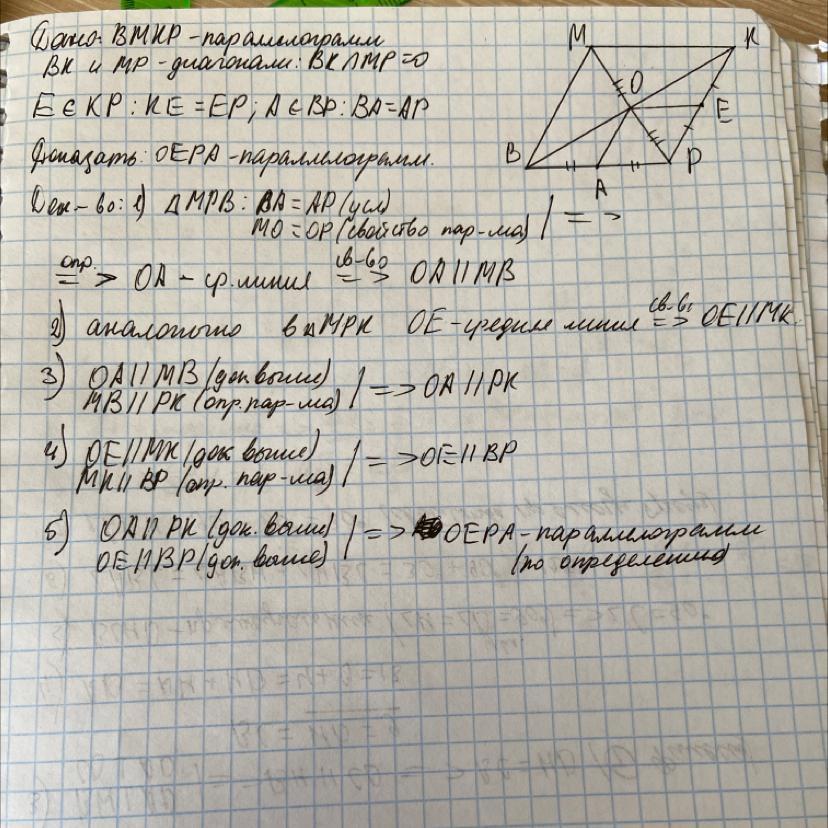 Дано: BMKP - параллелограмм
BK и MP - диагонали: BK∩MP=O
E∈KP : KE=EP; A∈BP: BA=AP
Доказать: OEPA - параллелограмм.
M
K
O
E
B
A
P
Док-во: 1) △MPB: BA=AP (усл)
MO=OP (свойство пар-ма) | =>
опр. => OA - ср. линия св-во => OA||MB
2) аналогично в △MPK OE - средняя линия св-во => OE||MK.
3) OA||MB (док. выше)
MB||PK (опр. пар-ма) | => OA||PK
4) OE||MK (док выше)
MK||BP (опр. пар-ма) | => OE||BP
5) OA||PK (док. выше) | => OEPA - параллелограмм
OE||BP (док. выше) (по определению)